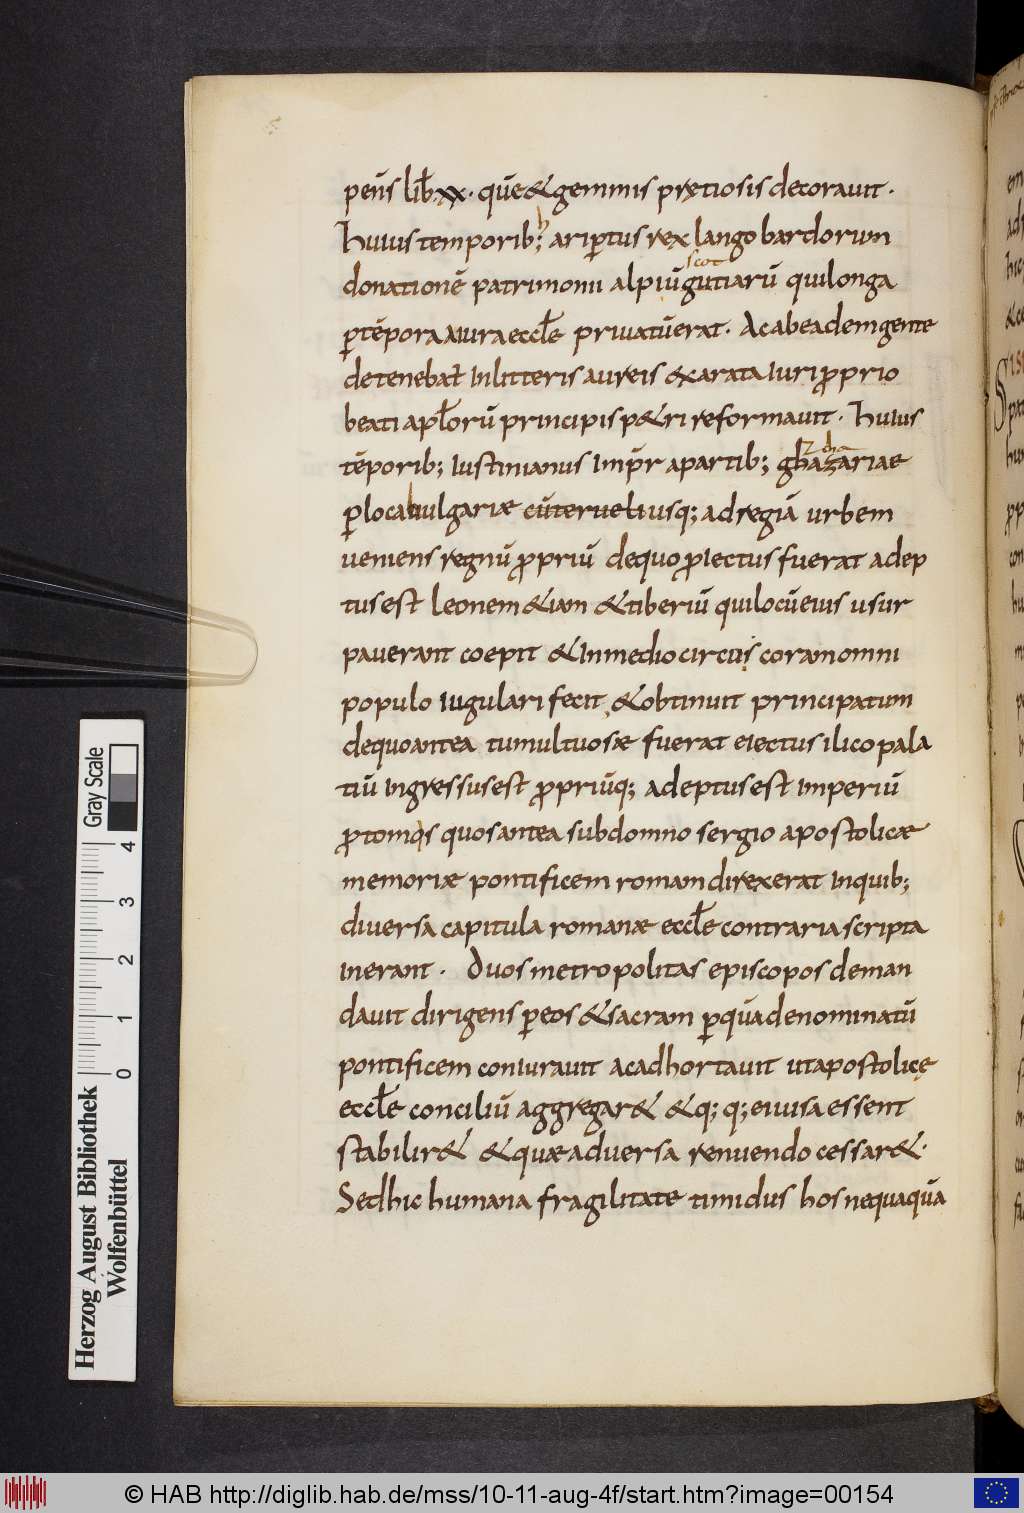 pens̄ lib̄ .xx. quȩ & gemmis prȩtiosis decorauit .
huius temporib; h aripertus rex langobardorum
donationē patrimonii alpiū gutiarū qui longa
scot
p̱ tēpora a iura eccłe priuatū erat . Ac ab eadem gente
detenebat In litteris aureis exarata Iuri proprio
beati apłorū principis p&ri reformauit . huius
tēporib; Iustinianus Imp̄r a partib; ghazariae
z cha
p̱ loca uulgariae cū teruel usq; ad regiā urbem
ueniens regnū propriū de quo proiectus fuerat adep
tus est leonem &iam & tiberiū qui locū eius usur
pauerant coepit & In medio circus coram omni
populo Iugulari fecit , & obtinuit principatum
de quo antea tumultuosae fuerat eiectus ilico pala
tiū Ingressus est propriūq; adeptus est Imperiū
protomos quos antea sub domno sergio apostolicae
memoriae pontificem romam direxerat In quib;
diuersa capitula romanae eccłe contraria scripta
inerant . Duos metropolitas episcopos deman
dauit dirigens per eos & sacram per quā denominatū
pontificem coniurauit ac adhortauit ut apostolicȩ
eccłe conciliū aggregar& & q;q; ei uisa essent
stabilir& & quae aduersa renuendo cessar& .
Sed hic humana fragilitate timidus hos nequaquā
Herzog August Bibliothek
Wolfenbüttel
0 1 2 3 4
Gray Scale
© HAB http://diglib.hab.de/mss/10-11-aug-4f/start.htm?image=00154